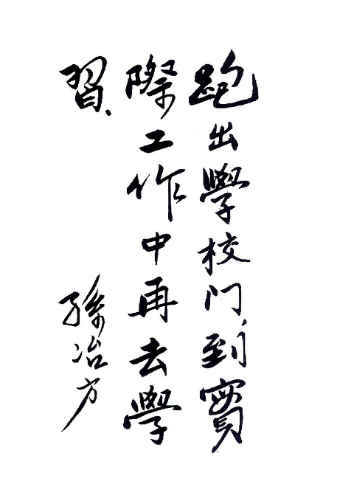 跑出學校门,到實
際工作中再去學
習、
孫冶方